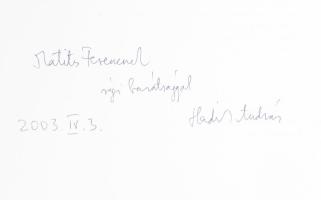 Matits Ferencnek
régi barátsággal
2003. IV. 3.
Hadik András